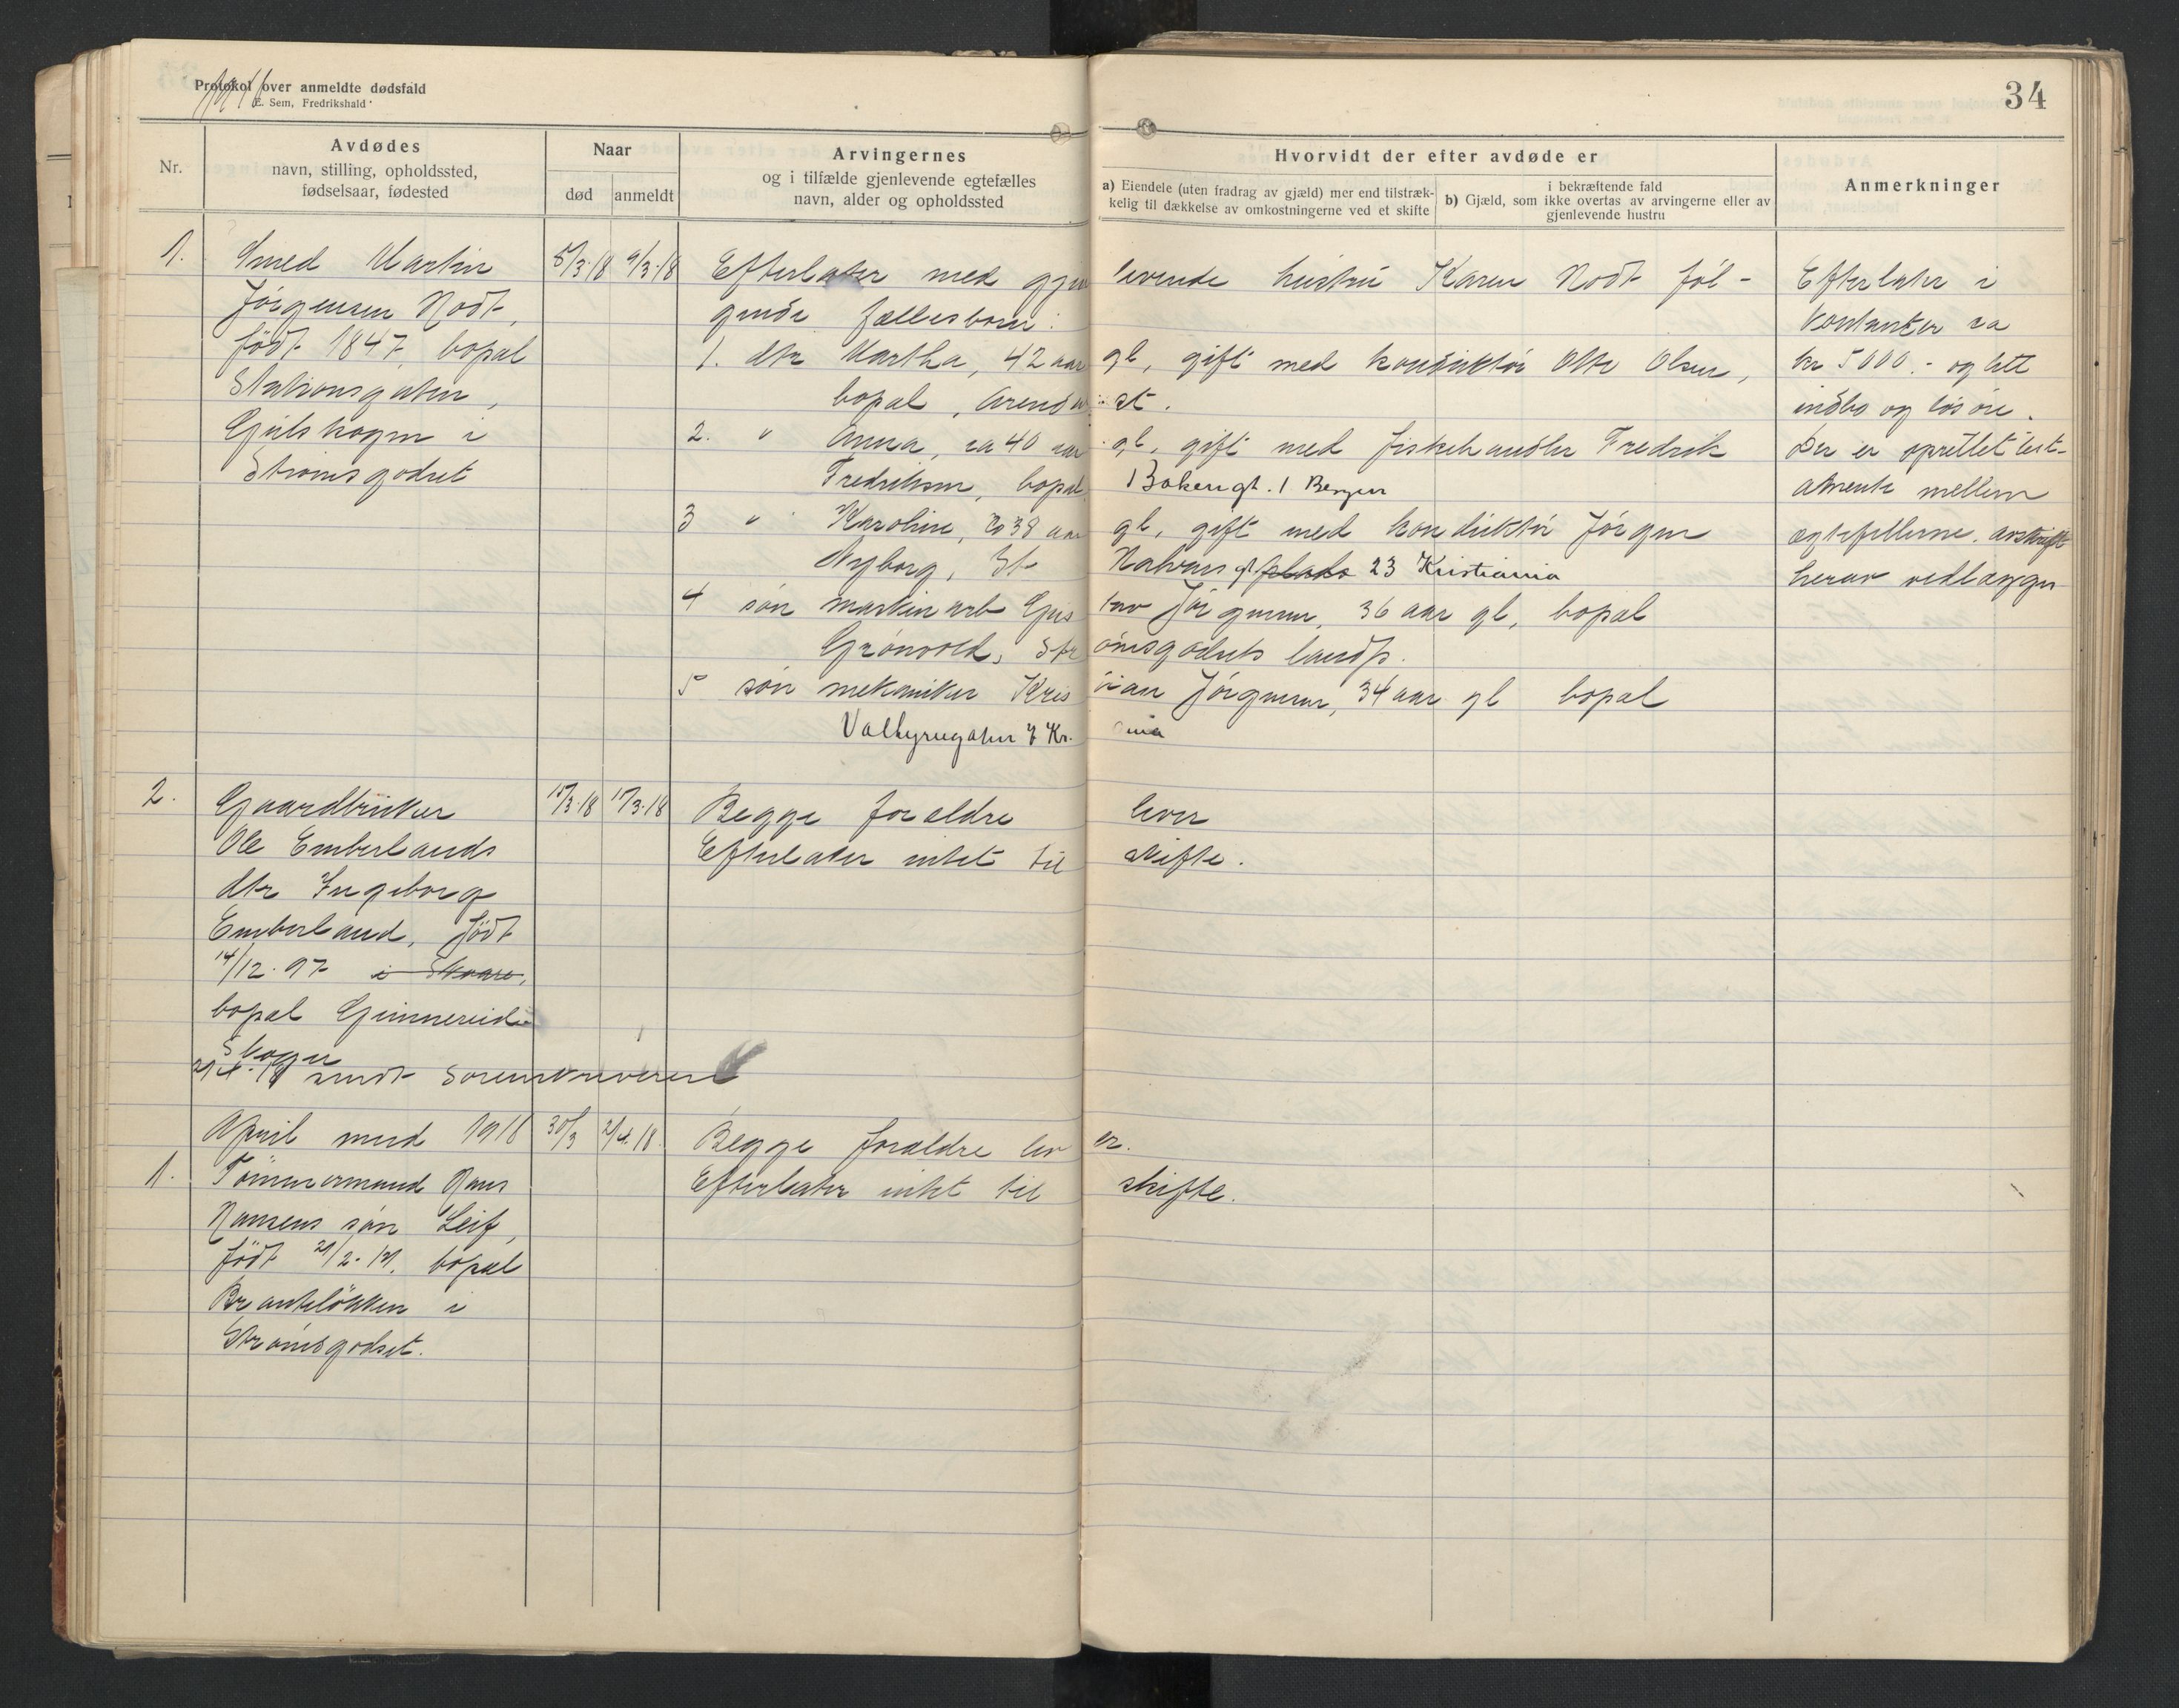 Protokol over anmeldte dødsfald
E. Sem, Fredrikshald
34
Nr.
Avdødes
navn, stilling, opholdssted,
fødselsaar, fødested
Naar
død
anmeldt
Arvingernes
og i tilfælde gjenlevende egtefælles
navn, alder og opholdssted
Hvorvidt der efter avdøde er
a) Eiendele (uten fradrag av gjæld) mer end tilstræk-
kelig til dækkelse av omkostningerne ved et skifte
i bekræftende fald
b) Gjæld, som ikke overtas av arvingerne eller av
gjenlevende hustru
Anmerkninger
1.
Smed Martin
Jörgensen Nodt,
født 1847, bopæl
Stationsgaten,
Gulskogen i
Strömsgodset
5/3.18
9/3.18
Efterlater med gjenlevende hustru Karen Nodt föl-
gende fællesbørn:
1. dtr Martha, 42 aar gl, gift med konduktör Olte Olsen,
bopæl, Arendal st.
2. " Anna, ca 40 aar gl, gift med fiskehandler Fredrik
Fredriksen, bopæl Bakergt. 1 Bergen
3 " Karoline, 38 aar gl, gift med konduktör Jörgen
Nyborg, St Halvards gt plads 23 Kristiania
4 sön maskinarb Gustav Jörgensen, 36 aar gl, bopæl
Grönvold, Strömsgodsets landsp.
5 sön mekaniker Kristian Jörgensen, 34 aar gl bopæl
Valkyriegaten 7 Kr.ania
Efterlater i
kontanter ca
kr 5000.- og litt
indbo og lösöre.
Der er oprettet test-
amente mellem
egtefellerne. avskrift
herav vedlægges
2.
Gaardbruker
Ole Emberlands
dtr Ingeborg
Emberland, födt
14/12.97 i Skoger,
bopæl Gunnereid
Skoger
15/3.18
17/3.18
Begge forældre lever
Efterlater intet til skifte.
2/4.18 sendt sorenskriveren
April mnd 1918
30/3
2/4.18
Begge forældre lever.
1.
Tömmermand Hans
Efterlater intet til skifte.
Hansens sön Leif,
födt 21/2-17, bopæl
Brantelökken i
Strömsgodset.